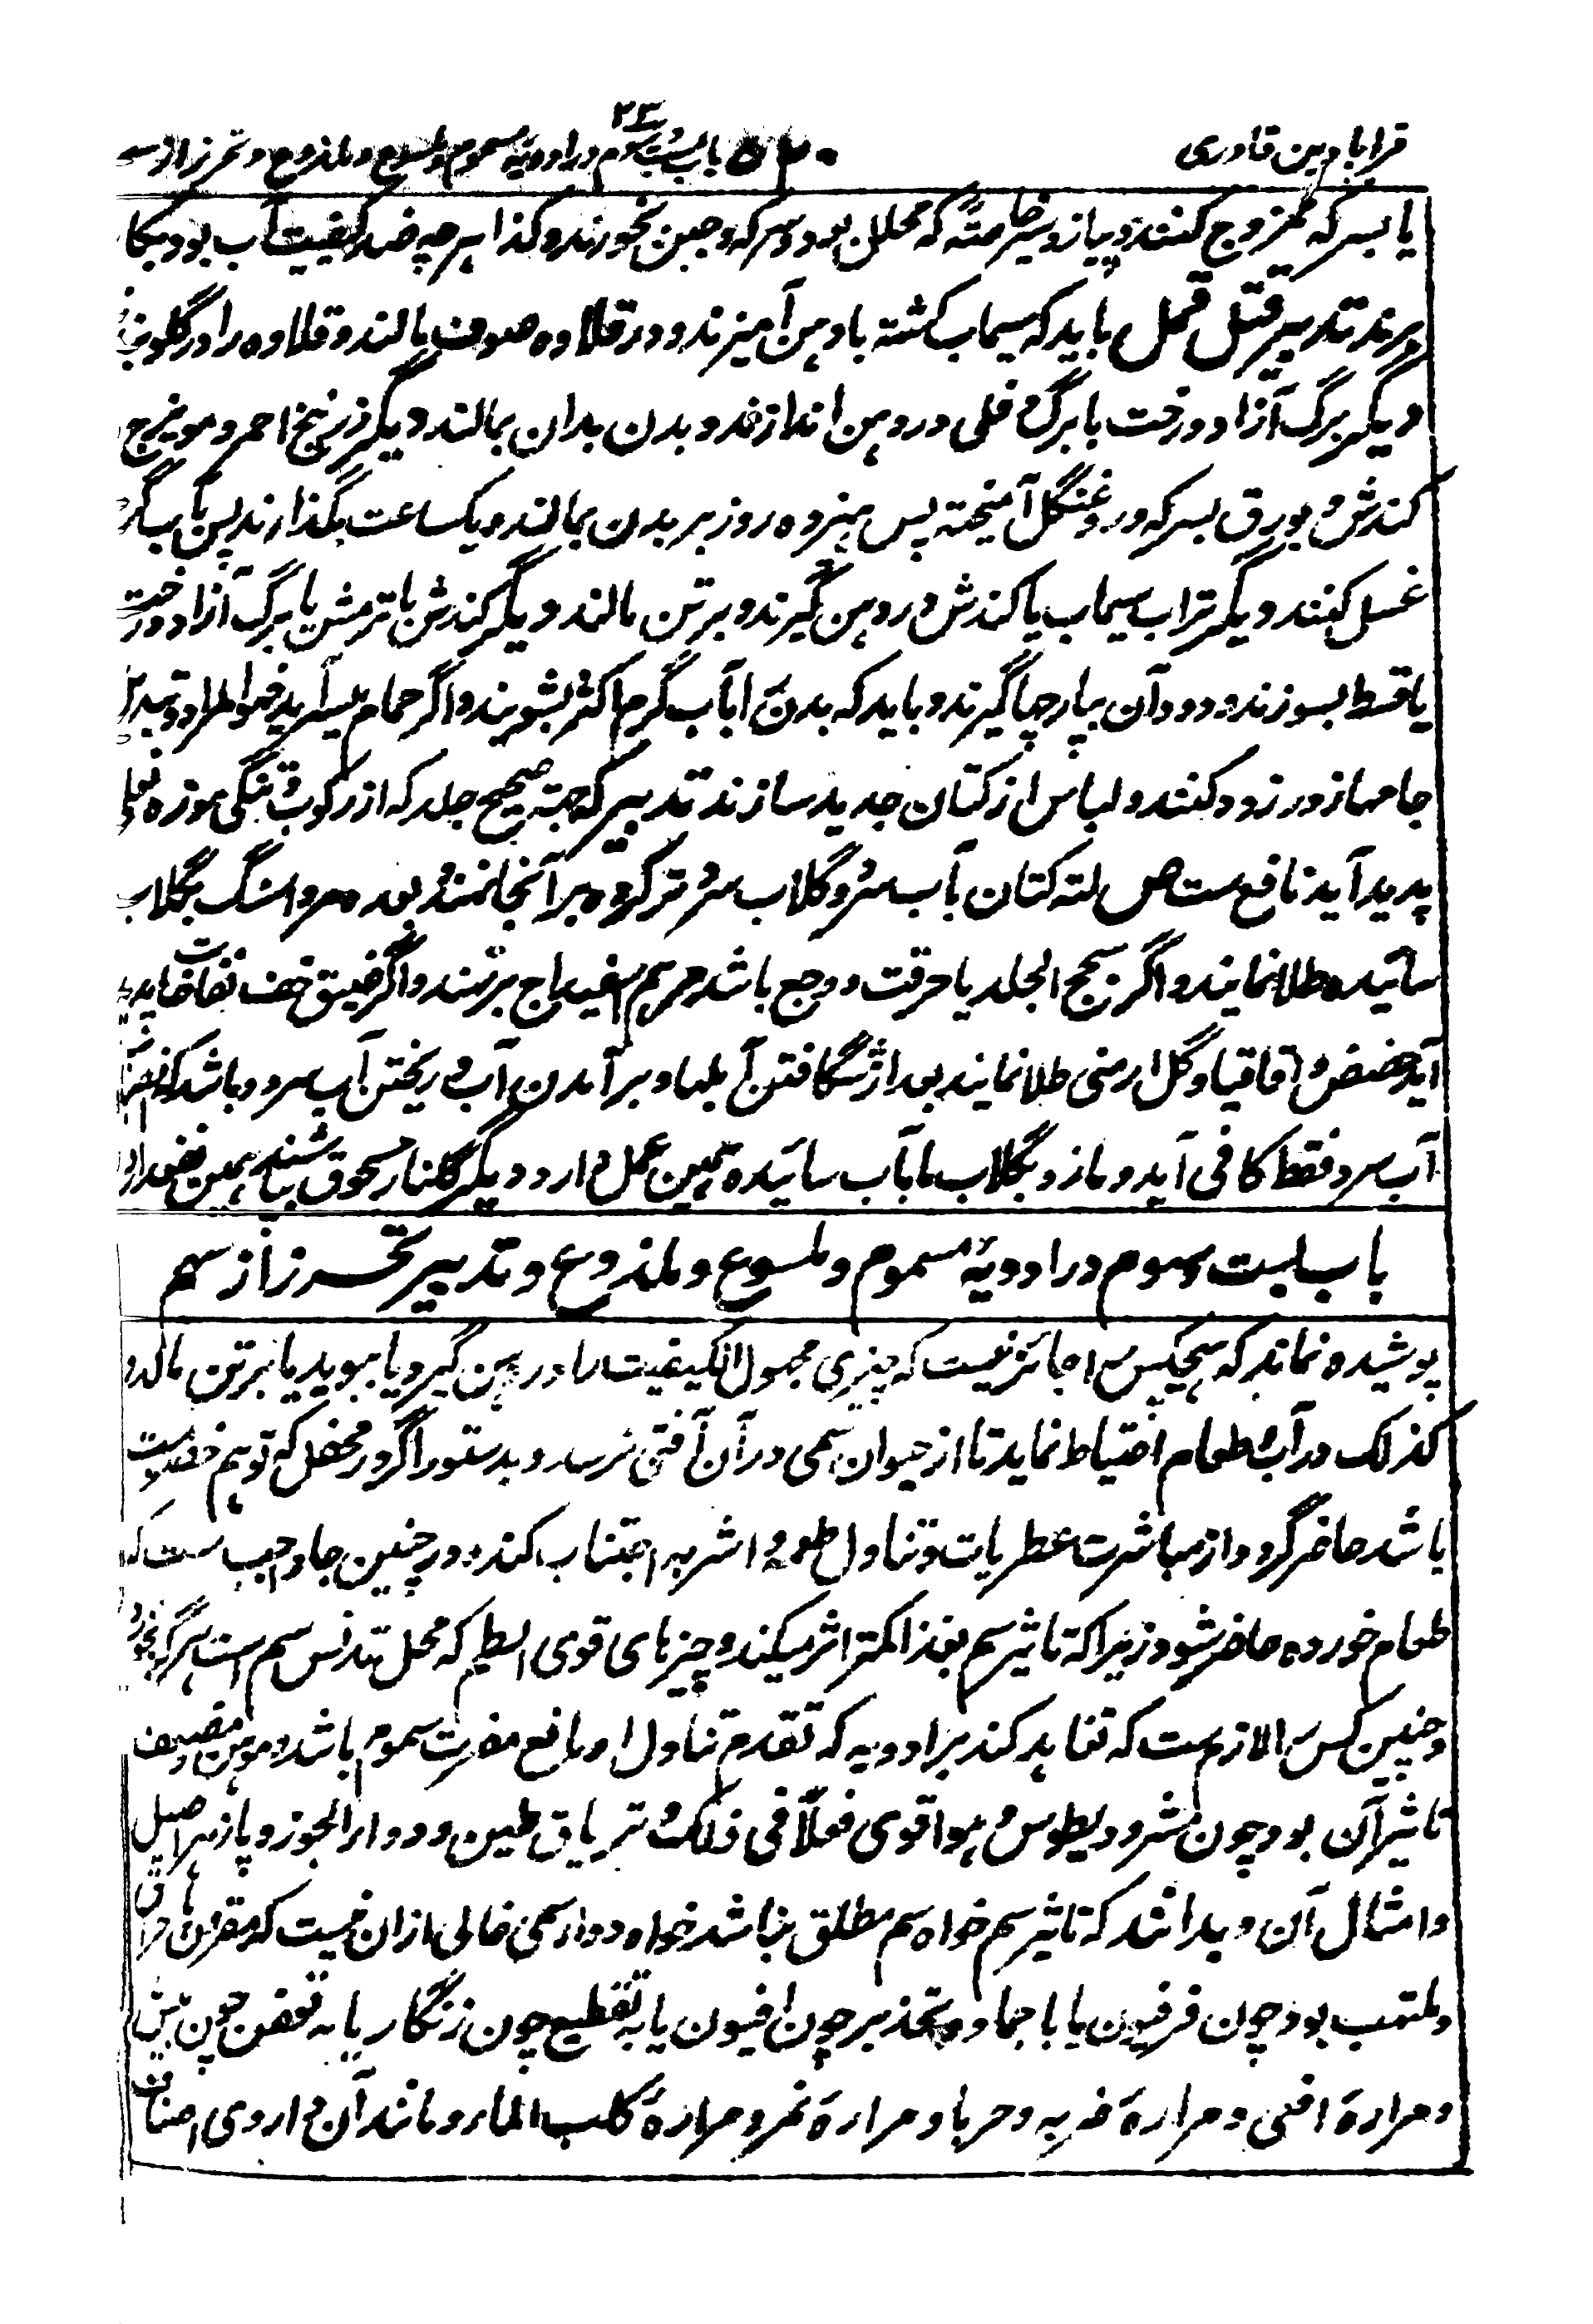 قرابادین قادری
۵۲۰
باب بست سوم در ادویۀ مسموم و ملسوع و ملدوغ و تحرز از سم
۲۳
یا بسرکه ممزوج کنند و پیاز و شیر خاصةً که محلل بود و سرکه و جبن بخورند و کذا هر چه ضد کیفیت آب بود بکار
برند تدبیر قتل قمل باید که سیماب کشته با دهن آمیزند و در قلاوه صوف مالند و قلاوه را در گلو
دیگر برگ آزاد درخت با برگ دفلی در دهن اندازند و بدن بدان بمالند دیگر زرنیخ احمر و مویزج
کندش و بورق بسرکه و روغنگل آمیخته پس هنرده روز بر بدن بمالند و یکساعت بگذارند پس بآب گرم
غسل کنند دیگر تراب سیماب یا کندش در دهن گیرند و بر تن مالند دیگر کندش یا ترمس یا برگ آزاد درخت
یا قسط بسوزند و دود آن بپارچها گیرند و باید که بدن را بآب گرم اکثر بشویند و اگر حمام میسر آید فهو المراد و تبدیل
جامها زود زود کنند و لباس از کتان جدید سازند تدبیر که جهة سحج جلد که از رکوب و تنگی موزه
پدید آید نافع ست ص لته کتان بآب سرد و گلاب سرد تر کرده بر آنجا نهند و بعده مرداسنگ بگلاب
سائیده طلا نمایند و اگر سحج الجلد با حرقت و وجع باشد مرهم اسفیداج بر نهند و اگر ضیق خف نفاخات پدید
آید حضض و اقاقیا و گل ارمنی طلا نمایند بعد از شگافتن آبلها و بر آمدن آب و ریختن آب سرد باشد که
آب سرد فقط کافی آید و مازو بگلاب یا بآب سائیده همین عمل دارد دیگر گلنار مسحوق پاشند همین نفع دارد
باب بست و سوم در ادویۀ مسموم و ملسوع و ملدوغ و تدبیر تحرز از سم
پوشیده نماند که هیچکس را جائز نیست که چیزی مجهول الکیفیت را در دهن گیرد یا ببوید یا بر تن مالد و
کذلک در آب و طعام احتیاط نماید تا از حیوان سمی در آن آفتی نرسد و بدستور اگر در محفل که توهم خصومت
باشد حاضر گردد از مباشرت عطریات و تناول طعمه و اشربه اجتناب کند و در چنین جا واجب ست که
طعام خورده حاضر شود زیرا که تاثیر سم بعد غذا کمتر اثر میکند و چیزهای قوی الطعم که محل تدلس سم است هرگز نخورد
و چنین کس را لازم ست که تعاهد کند بر ادویه که تقدم تناول او مانع مضرت سموم باشد و موهن و مضعف
تاثیر آن بود چون مثرودیطوس و هو اقوی فعلاً فی ذلک و تریاق طین و دواء الجوز و پازهر اصیل
و امثال آن و بدانند که تاثیر سم خواه سم مطلق باشد خواه دواء سمی خالی از ان نیست که مفرط
و ملتهب بود چون فرفیون یا با جماد و تخدیر چون افیون یا به تقطیع چون زنگار یا به تعفن چون بیش
و مرارۀ افعی و مرارۀ ضربه و حربا و مرارۀ نمر و مرارۀ کلب الماء و مانند آن و ازوی اصناف